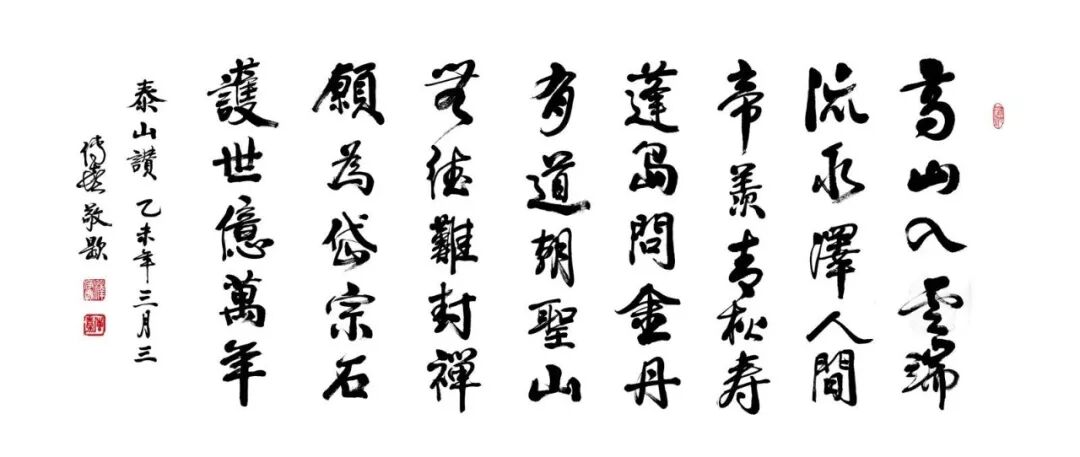 高山入雲端
流水澤人間
帝羨春秋寿
蓬島問金丹
有道朝聖山
無德難封禪
願為岱宗石
護世億萬年
泰山讚 乙未年三月三
敬題